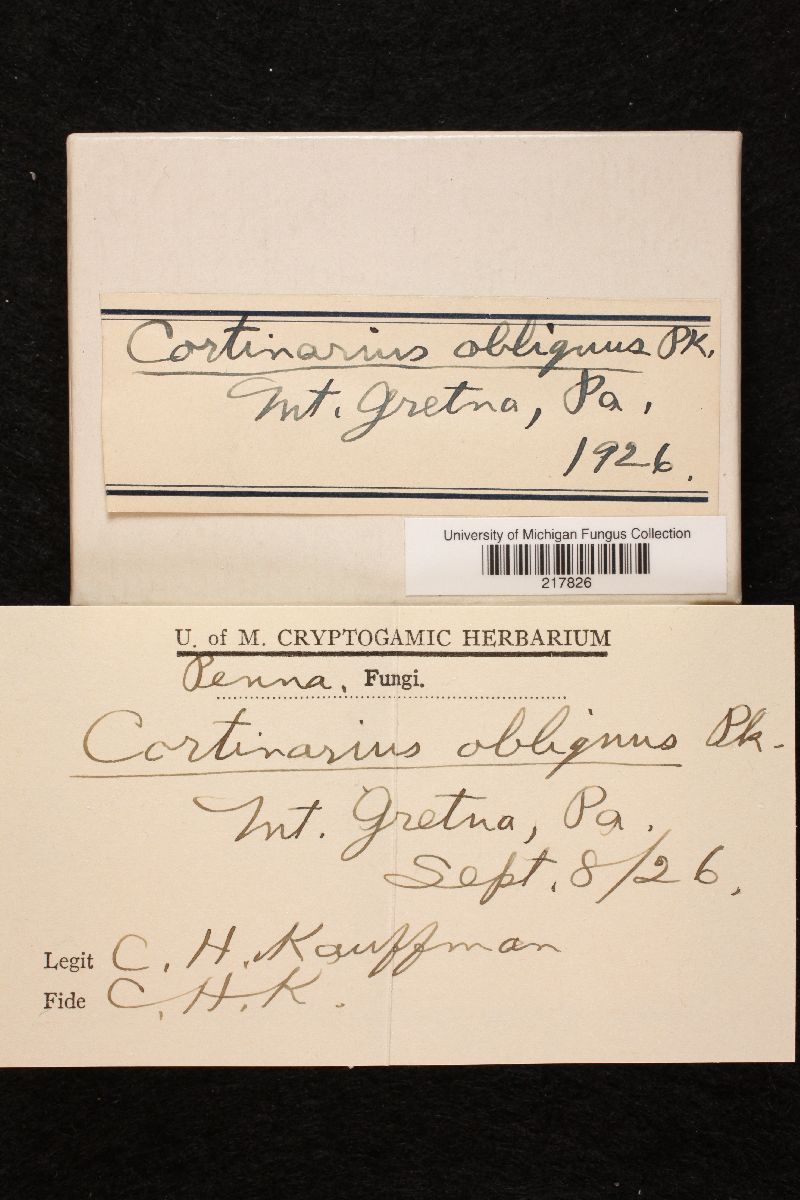 Cortinarius obliquus Pk.
Mt. Gretna, Pa.
1926.
University of Michigan Fungus Collection
217826
U. of M. CRYPTOGAMIC HERBARIUM
Penna. Fungi.
Cortinarius obliquus Pk.
Mt. Gretna, Pa.
Sept. 8/26.
Legit C. H. Kauffman
Fide C. H. K.